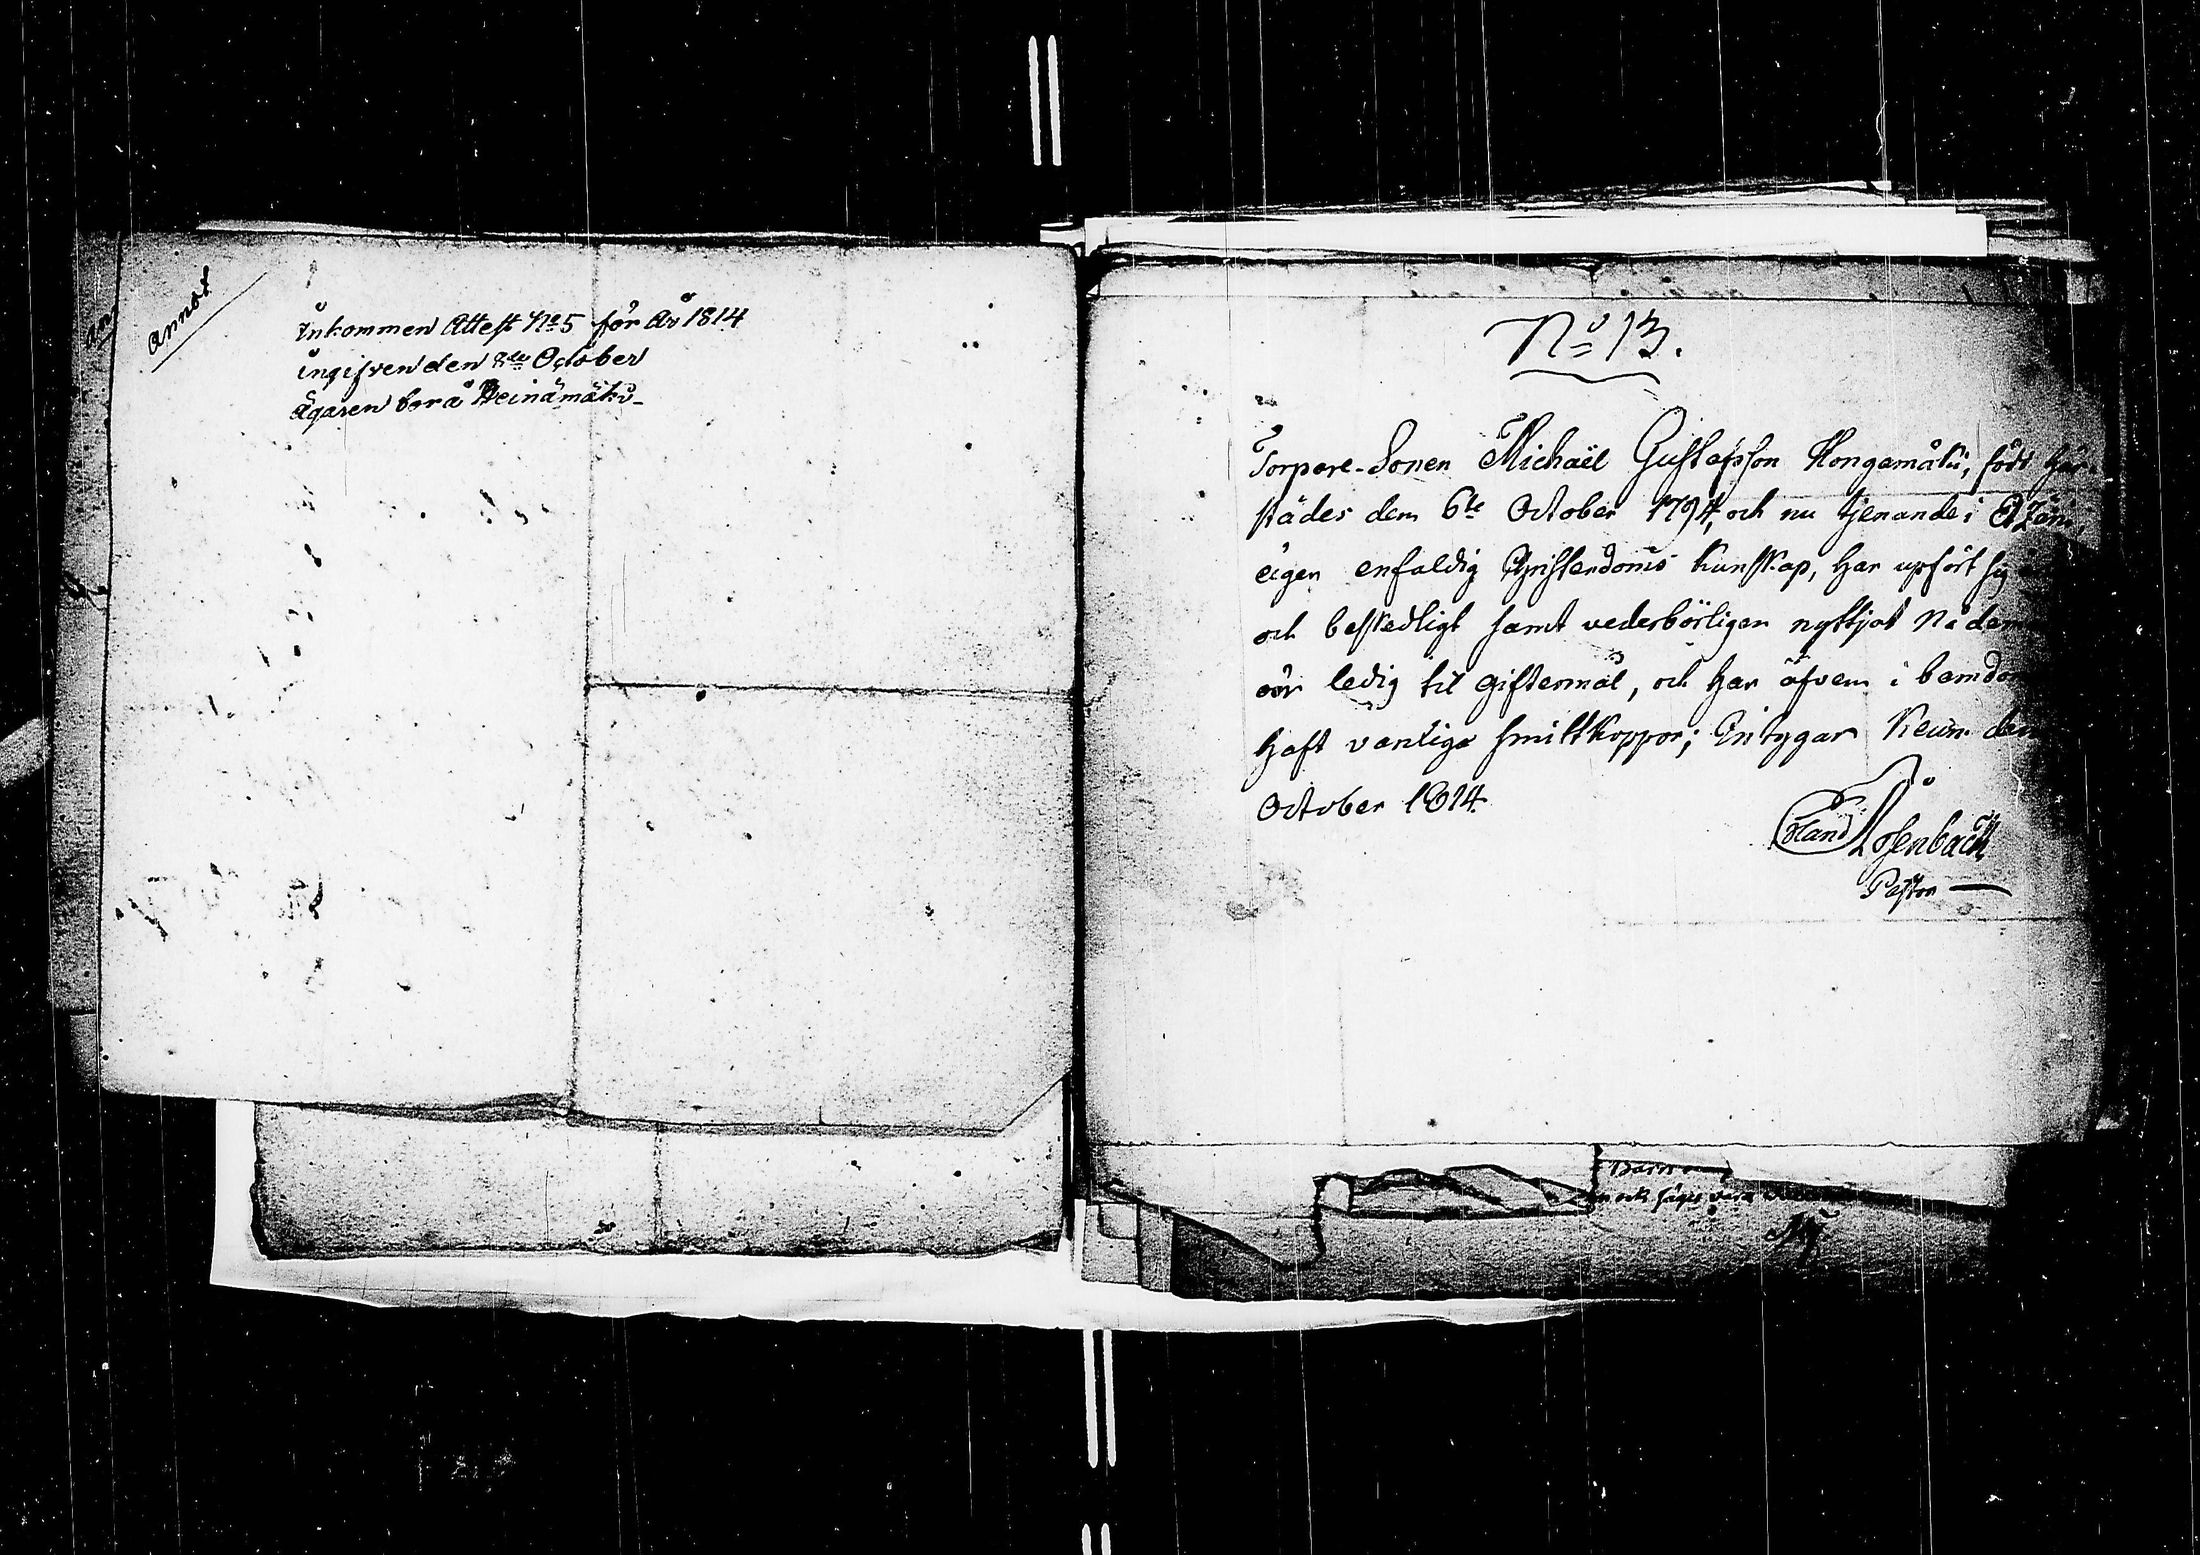 Annot
Inkommen Attest No 5 för År 1814
ingifven den 8de October
Ägaren bor å Heinämäki
No 13.
Torpare-Sonen Michaël Gustafsson Kongamäki, född här
städes den 6te October 1794, och nu tjenande i
äger enfaldig Christendoms kunskap, har upfört sig
och beskedligt samt vederbörligen nyttjat Nåden
är ledig til giftermål, och har äfven i barndom
haft vanlige smittkoppor; Intygar Keuru den
October 1814.
Erland Rosenback
Pastor
Barn
och säges vara